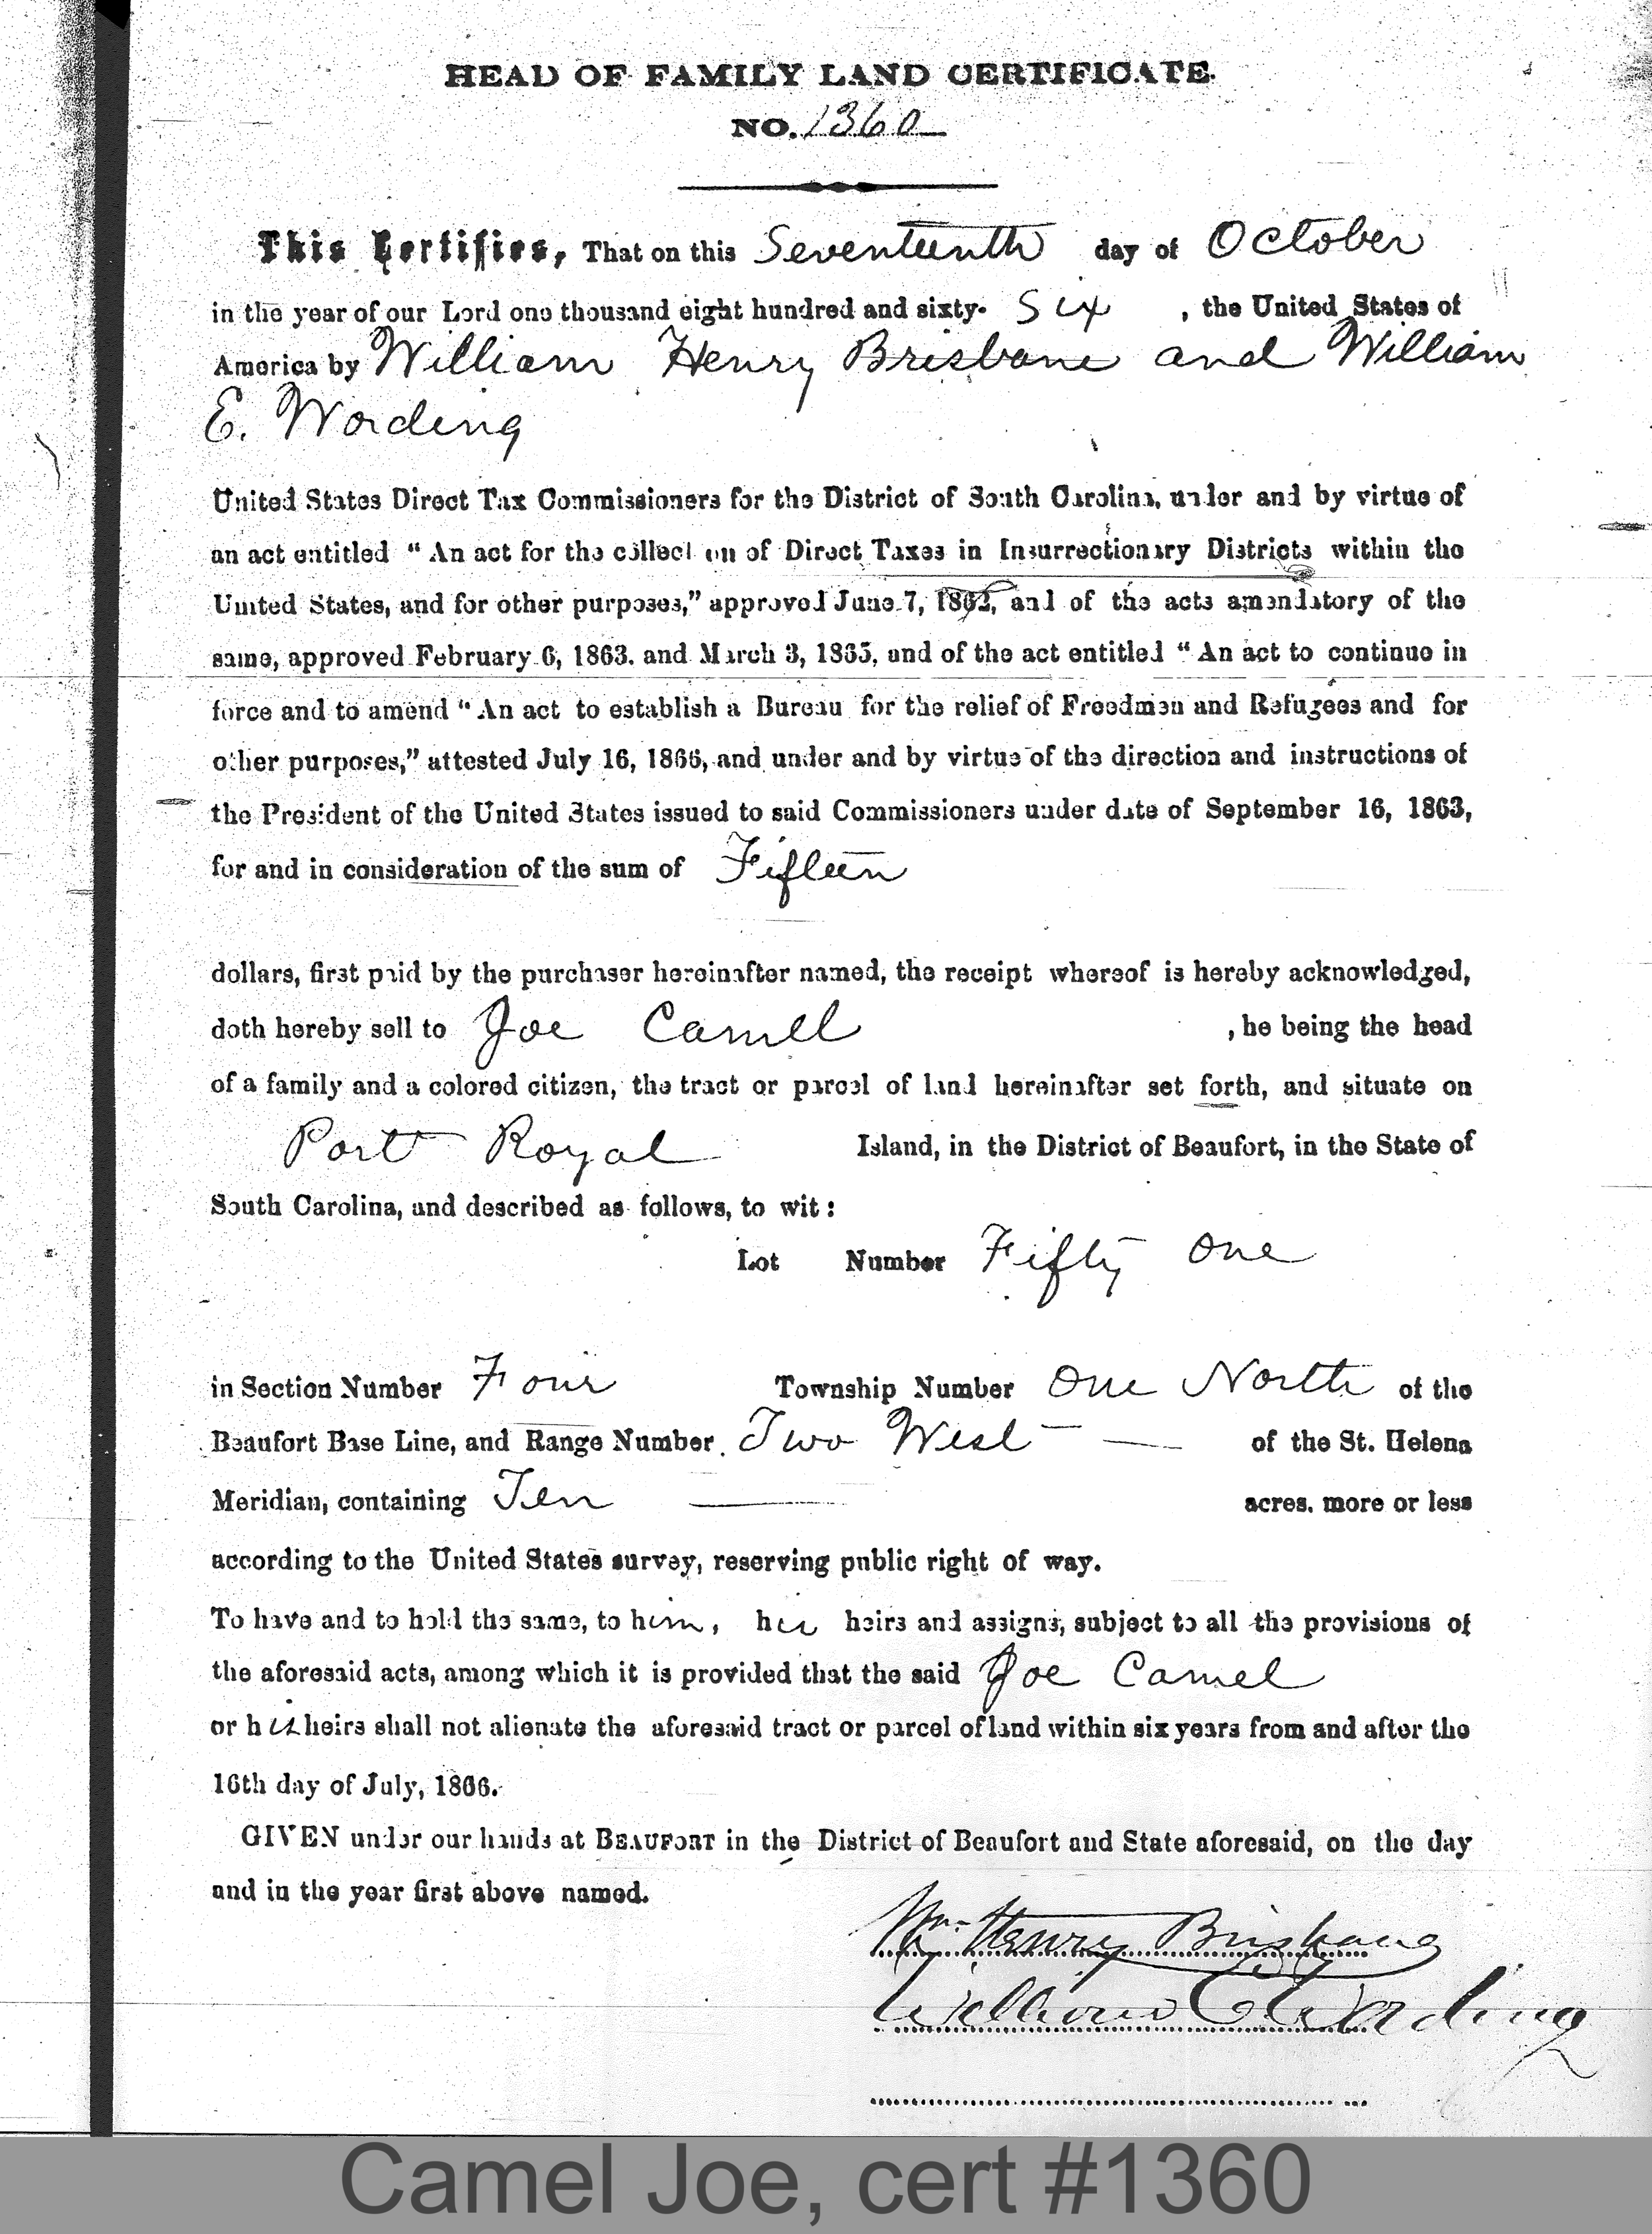 HEAD OF FAMILY LAND CERTIFICATE.
NO. 1360
This Certifies, That on this Seventeenth day of October
in the year of our Lord one thousand eight hundred and sixty- Six , the United States of
America by William Henry Brisbane and William
E. Wording
United States Direct Tax Commissioners for the District of South Carolina, under and by virtue of
an act entitled “ An act for the collection of Direct Taxes in Insurrectionary Districts within the
United States, and for other purposes,” approved June 7, 1862, and of the acts amendatory of the
same, approved February 6, 1863. and March 3, 1865, and of the act entitled “ An act to continue in
force and to amend “ An act to establish a Bureau for the relief of Freedmen and Refugees and for
other purposes,” attested July 16, 1866, and under and by virtue of the direction and instructions of
the President of the United States issued to said Commissioners under date of September 16, 1863,
for and in consideration of the sum of Fifteen
dollars, first paid by the purchaser hereinafter named, the receipt whereof is hereby acknowledged,
doth hereby sell to Joe Camel , he being the head
of a family and a colored citizen, the tract or parcel of land hereinafter set forth, and situate on
Port Royal Island, in the District of Beaufort, in the State of
South Carolina, and described as follows, to wit :
Lot Number Fifty One
in Section Number Four Township Number One North of the
Beaufort Base Line, and Range Number Two West — of the St. Helena
Meridian, containing Ten — acres. more or less
according to the United States survey, reserving public right of way.
To have and to hold the same, to him, his heirs and assigns, subject to all the provisions of
the aforesaid acts, among which it is provided that the said Joe Camel
or his heirs shall not alienate the aforesaid tract or parcel of land within six years from and after the
16th day of July, 1866.
GIVEN under our hands at BEAUFORT in the District of Beaufort and State aforesaid, on the day
and in the year first above named.
Wm Henry Brisbane
William E. Wording
Camel Joe, cert #1360